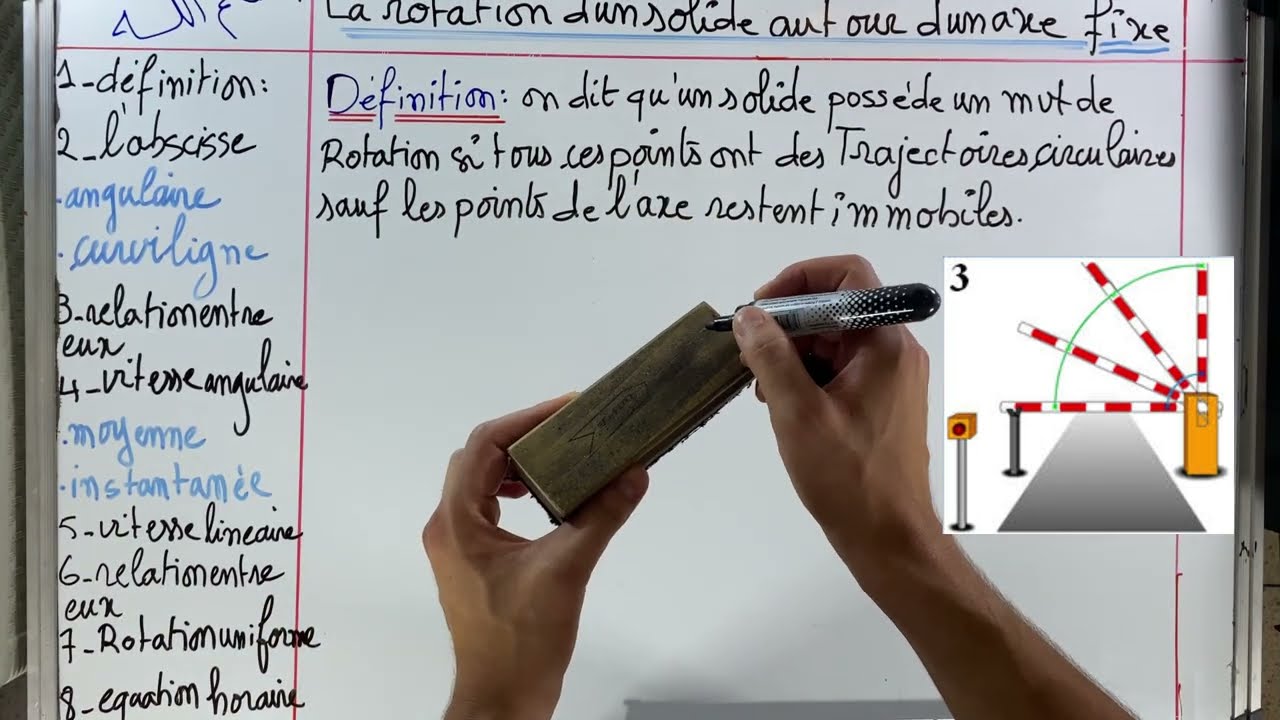 La rotation d'un solide autour d'un axe fixe
1_définition:
2_l'abscisse
.angulaire
.curviligne
3-relation entre
eux
4-vitesse angulaire
.moyenne
.instantanée
5-vitesse lineaire
6-relation entre
eux
7-Rotation uniforme
8-equation horaire
Définition: on dit qu'un solide posséde un mvt de
Rotation si tous ces points ont des Trajectoires circulaires
sauf les points de l'axe restent immobiles.
3